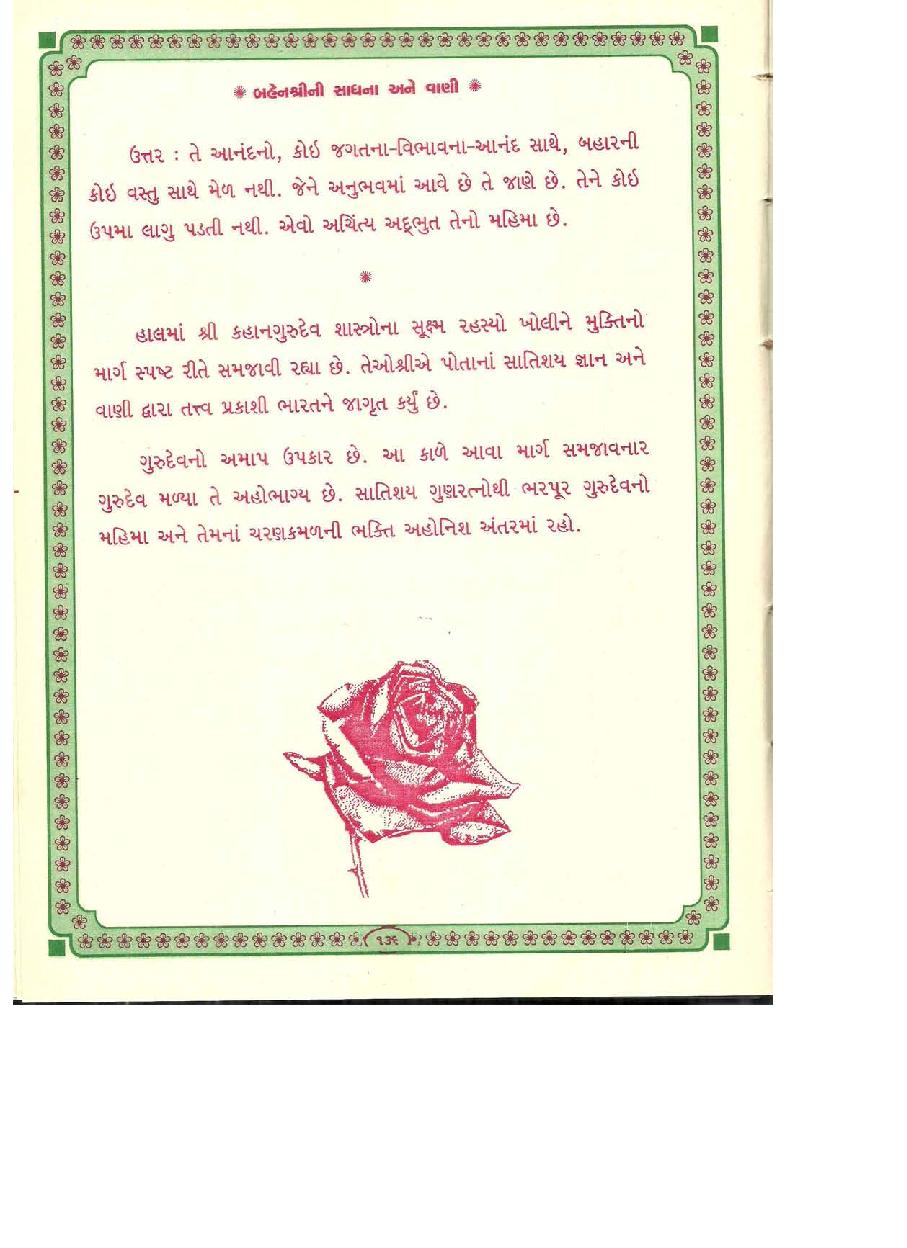 બહેનશ્રીની સાધના અને વાણી
ઉત્તર : તે આનંદનો, કોઇ જગતના-વિભાવના-આનંદ સાથે, બહારની
કોઇ વસ્તુ સાથે મેળ નથી. જેને અનુભવમાં આવે છે તે જાણે છે. તેને કોઇ
ઉપમા લાગુ પડતી નથી. એવો અચિંત્ય અદ્ભુત તેનો મહિમા છે.
હાલમાં શ્રી કહાનગુરુદેવ શાસ્ત્રોના સૂક્ષ્મ રહસ્યો ખોલીને મુક્તિનો
માર્ગ સ્પષ્ટ રીતે સમજાવી રહ્યા છે. તેઓશ્રીએ પોતાનાં સાતિશય જ્ઞાન અને
વાણી દ્વારા તત્ત્વ પ્રકાશી ભારતને જાગૃત કર્યું છે.
ગુરુદેવનો અમાપ ઉપકાર છે. આ કાળે આવા માર્ગ સમજાવનાર
ગુરુદેવ મળ્યા તે અહોભાગ્ય છે. સાતિશય ગુણરત્નોથી ભરપૂર ગુરુદેવનો
મહિમા અને તેમનાં ચરણકમળની ભક્તિ અહોનિશ અંતરમાં રહો.
૧૩૬